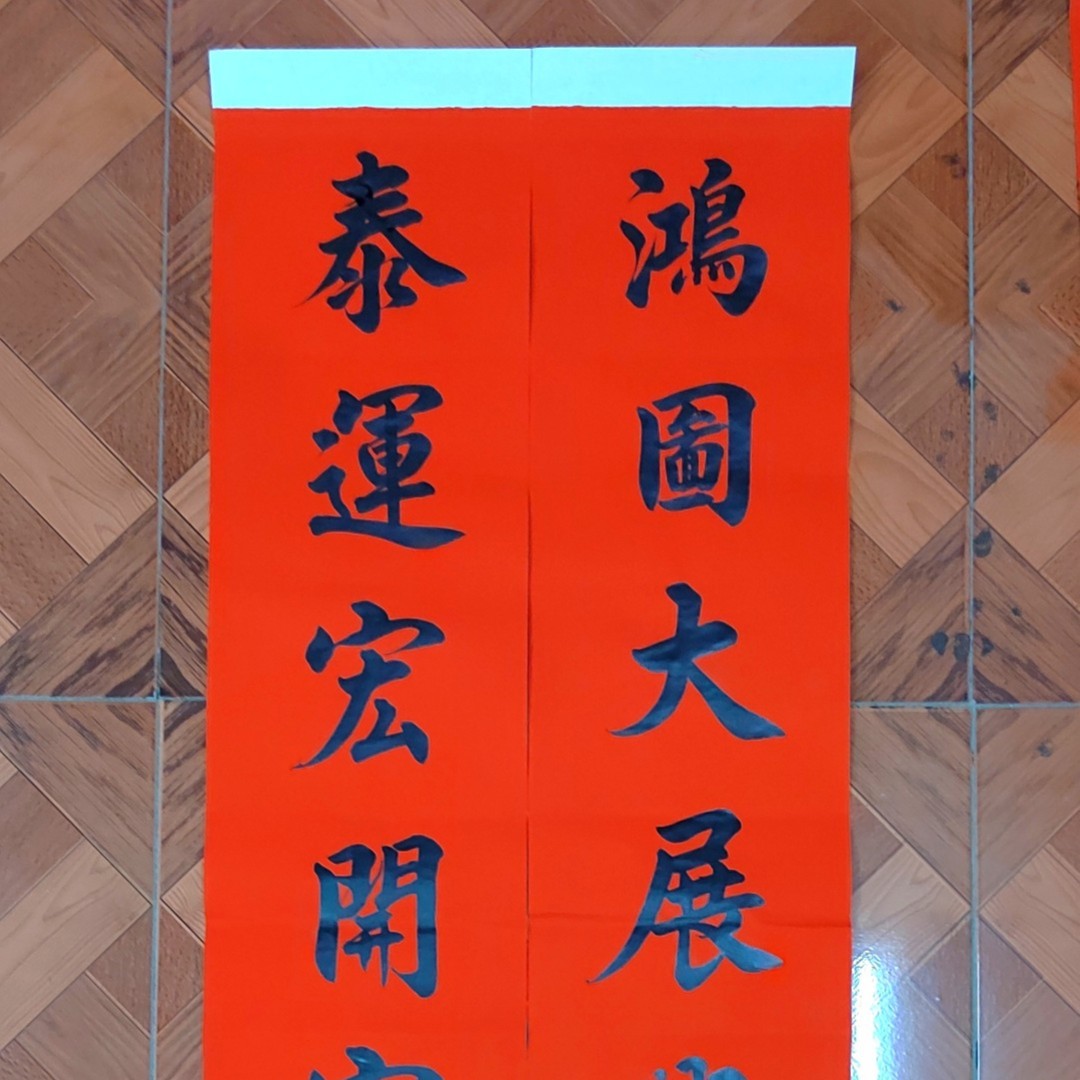 鴻圖大展
泰運宏開